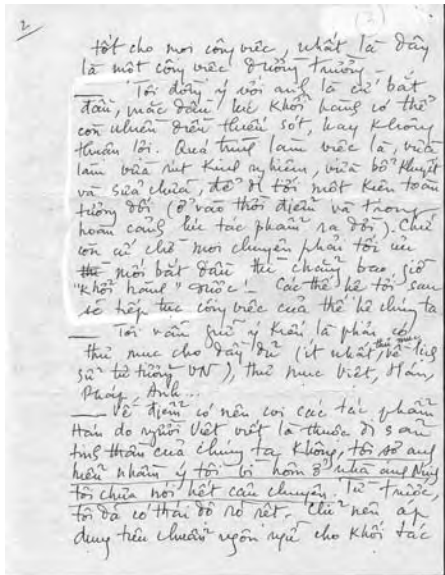 2
(2)
tốt cho mọi công việc, nhất là đây
là một công việc đường trường.
Tôi đồng ý với anh là cứ bắt
đầu, mặc dầu lúc khởi hành có thể
còn nhiều điều thiếu sót, hay không
thuận lợi. Quá trình làm việc là, vừa
làm vừa rút kinh nghiệm, vừa bổ khuyết
và sửa chữa, để đi tới một kiện toàn
tương đối (ở vào thời điểm và trong
hoàn cảnh lúc tác phẩm ra đời). Chứ
còn cứ chờ mọi chuyện phải tối ưu
mới bắt đầu thì chẳng bao giờ
"khởi hành" được! Các thế hệ tới sau
sẽ tiếp tục công việc của thế hệ chúng ta
Tôi vẫn giữ ý kiến là phải có
thư mục cho đầy đủ (ít nhất, về thư mục lịch
sử tư tưởng VN), thư mục Việt, Hán,
Pháp, Anh...
Về điểm có nên coi các tác phẩm
Hán do người Việt viết là thuộc di sản
tinh thần của chúng ta không, tôi sợ anh
hiểu nhầm ý tôi vì hôm ở nhà anh
tôi chưa nói hết câu chuyện. Từ trước
tôi đã có thái độ rõ rệt. Chỉ nên áp
dụng tiêu chuẩn ngôn ngữ cho khối tác